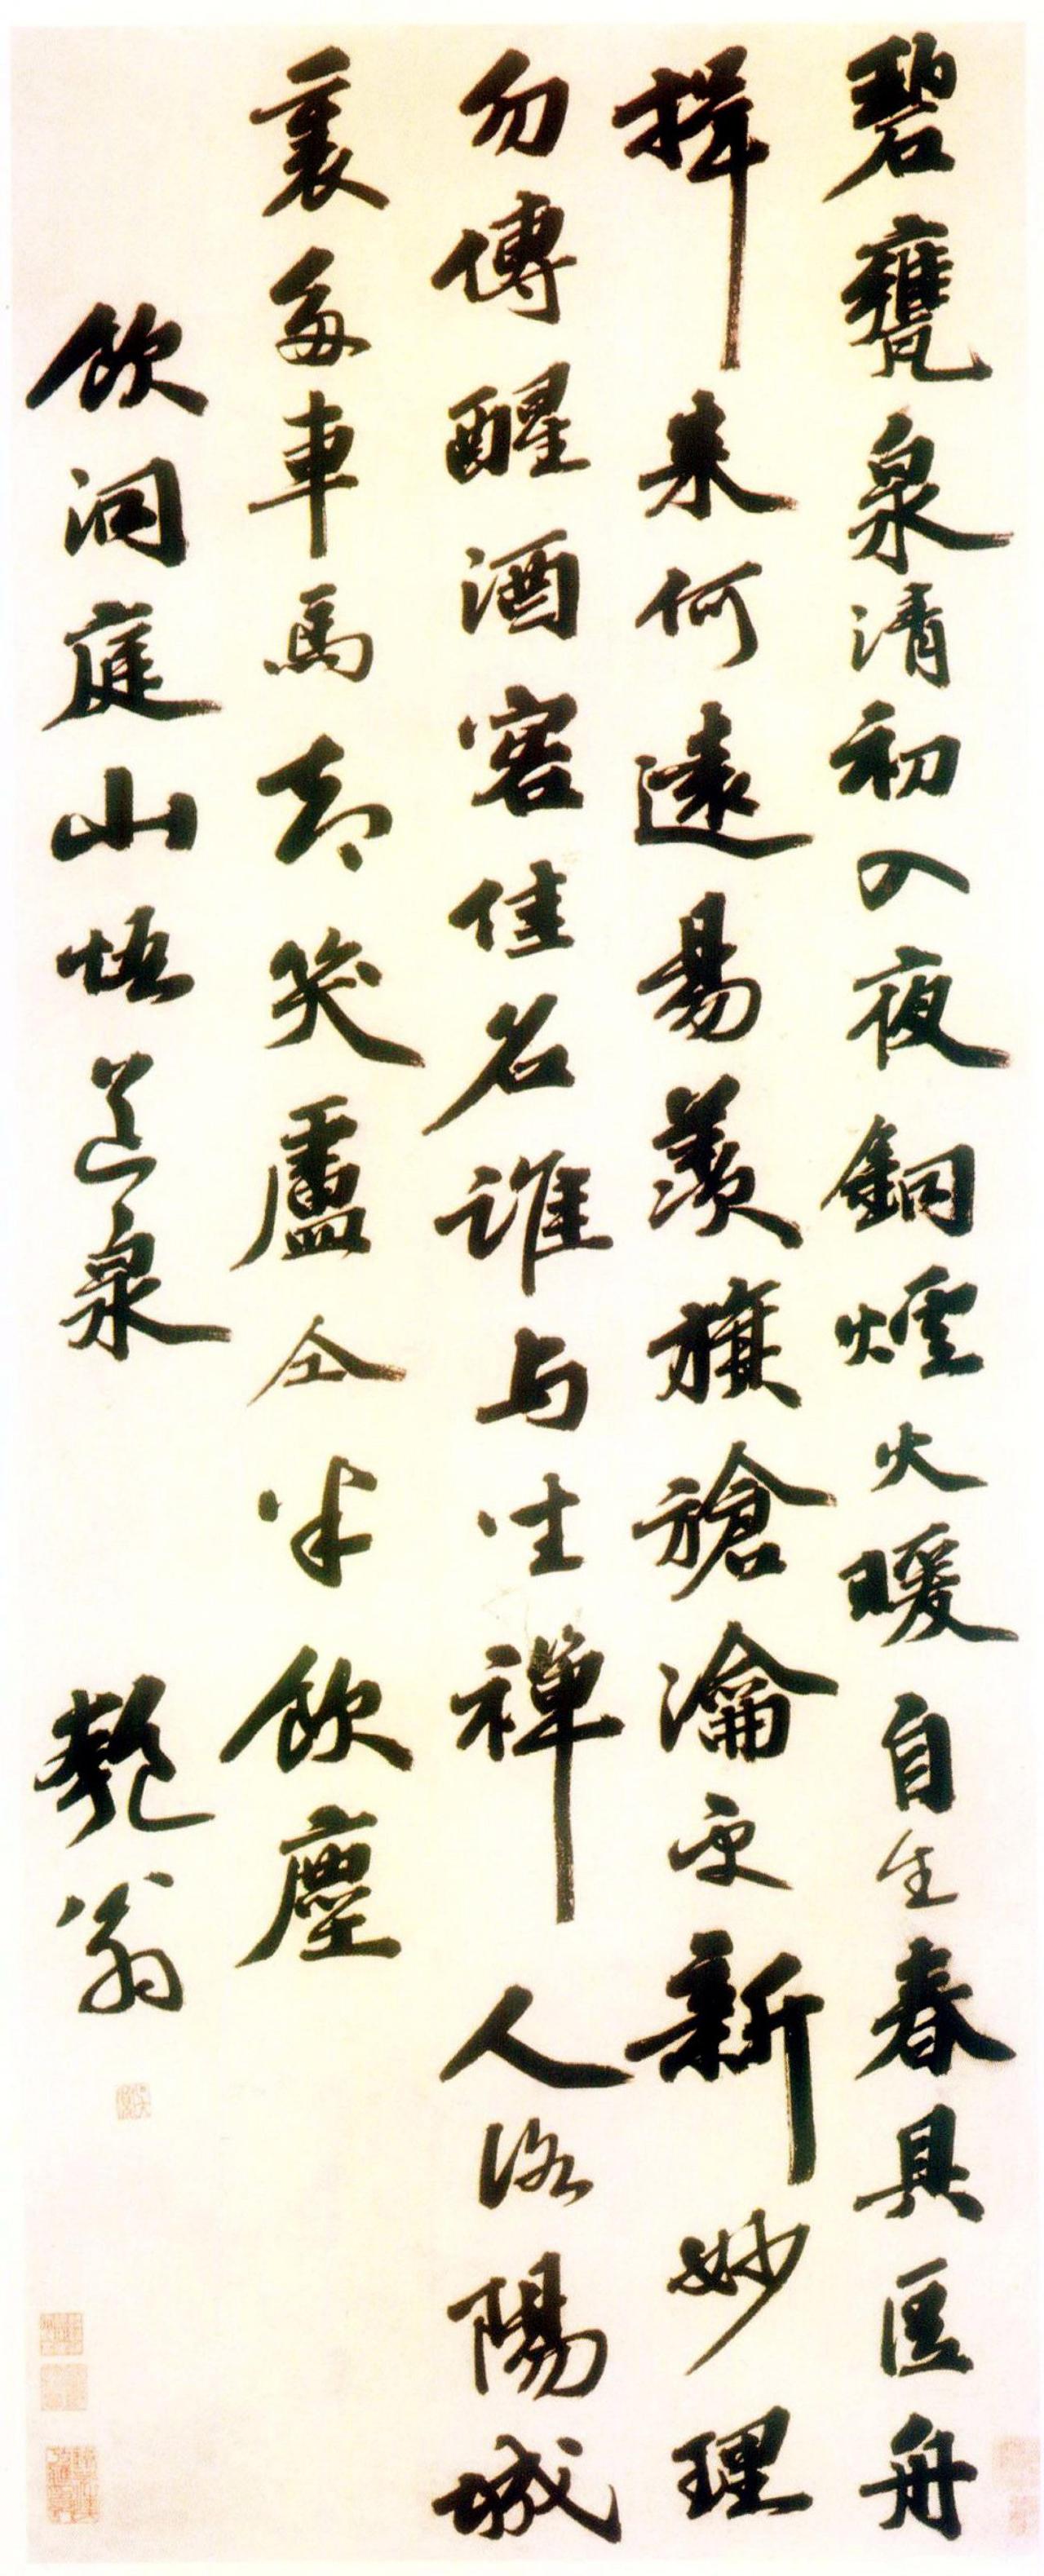 碧甕泉清初入夜銅爐火暖自生春具區舟
楫来何遠昜羨旗槍瀹更新妙理
勿傳醒酒客佳名誰与坐禪人洛陽城
裏多車馬却笑盧仝半飲塵
飲洞庭山悟道泉　匏翁